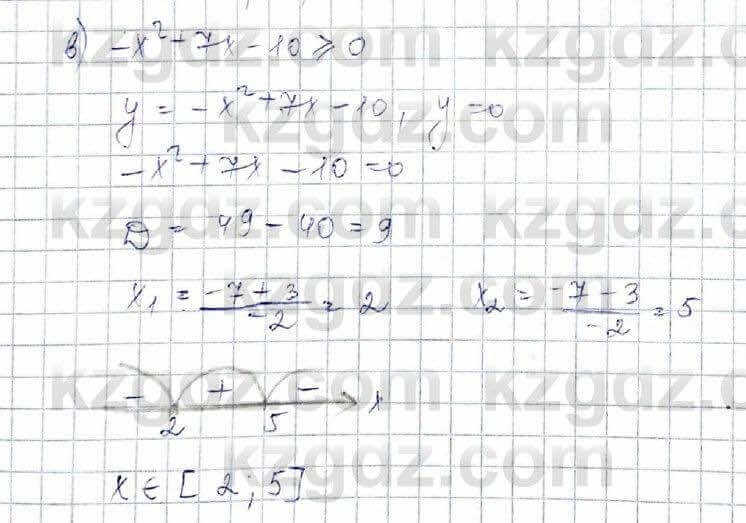 в) -x²+7x-10⩾0
y = -x²+7x-10, y=0
-x²+7x-10=0
D = 49-40=9
x₁ = (-7+3)/(-2) = 2 x₂ = (-7-3)/(-2) = 5
- + - x
2 5
x ∈ [2; 5]
kzgdz.com
kzgdz.com
kzgdz.com
kzgdz.com
kzgdz.com
kzgdz.com